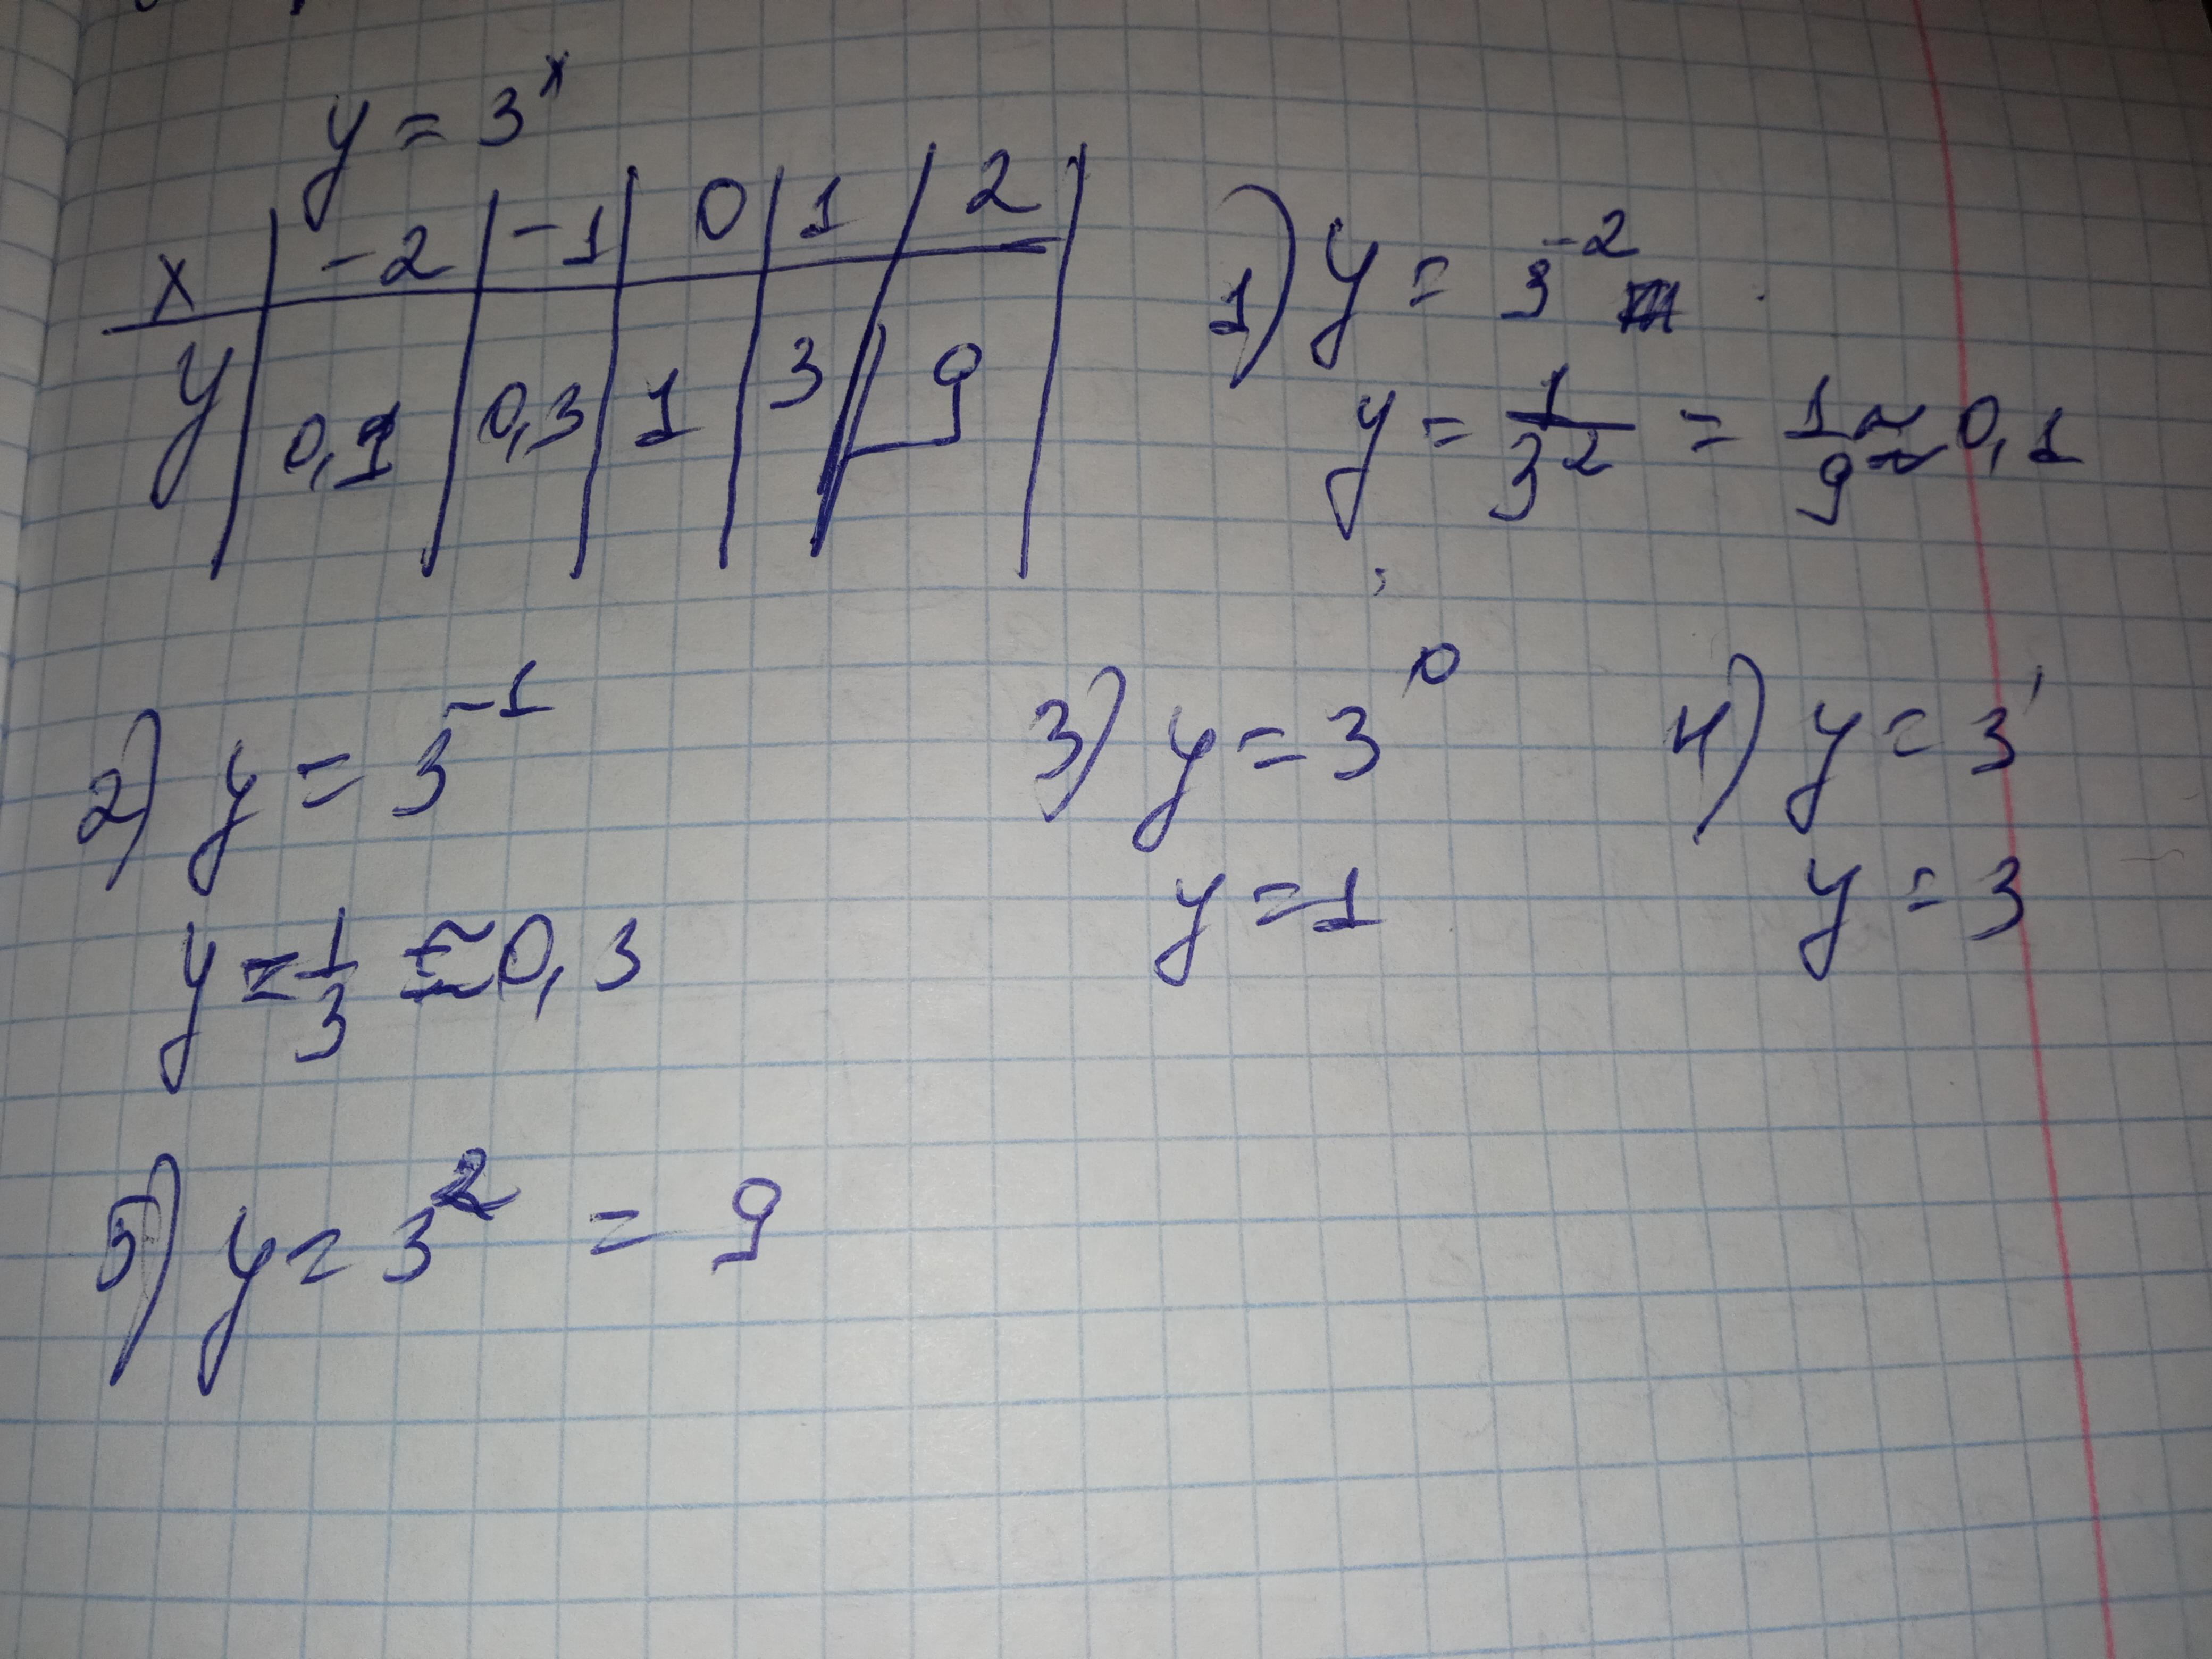 y = 3^x
x | -2 | -1 | 0 | 1 | 2 |
y | 0,1 | 0,3 | 1 | 3 | 9 |
1) y = 3^-2
y = 1/3^2 = 1/9 ≈ 0,1
2) y = 3^-1
y = 1/3 ≈ 0,3
3) y = 3^0
y = 1
4) y = 3^1
y = 3
5) y = 3^2 = 9